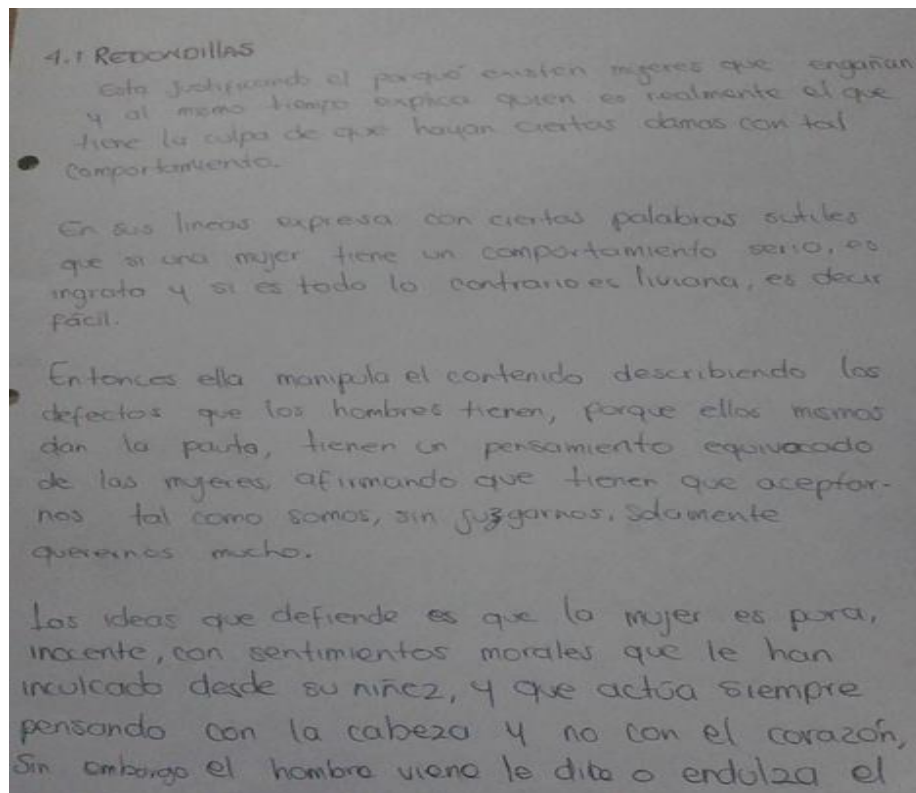 4.1 REDONDILLAS
Esta justificando el porqué existen mujeres que engañan
y al mismo tiempo explica quien es realmente el que
tiene la culpa de que hayan ciertas damas con tal
comportamiento.
En sus lineas expresa con ciertas palabras sutiles
que si una mujer tiene un comportamiento serio, es
ingrata y si es todo lo contrario es liviana, es decir
fácil.
Entonces ella manipula el contenido describiendo los
defectos que los hombres tienen, porque ellos mismos
dan la pauta, tienen un pensamiento equivocado
de las mujeres, afirmando que tienen que aceptar-
nos tal como somos, sin juzgarnos. Solamente
querernos mucho.
Las ideas que defiende es que la mujer es pura,
inocente, con sentimientos morales que le han
inculcado desde su niñez, y que actúa siempre
pensando con la cabeza y no con el corazón,
Sin embargo el hombre viene le dice o endulza el